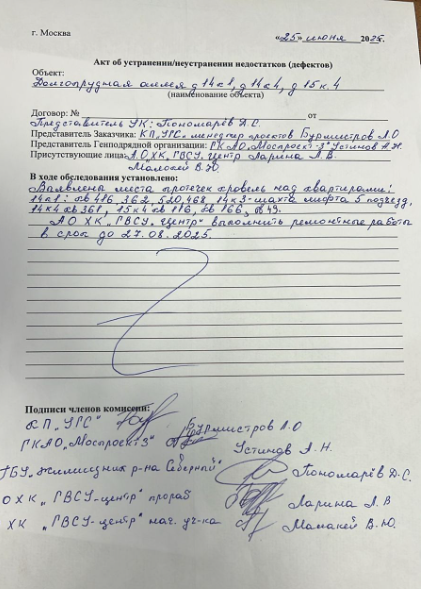 г. Москва
«25» июня 2025.
Акт об устранении/неустранении недостатков (дефектов)
Объект:
Долгопрудная аллея д 14к1, д 14к4, д 15 к.4
(наименование объекта)
Договор: № от
Представитель УК: Пономарёв Д.С.
Представитель Заказчика: КП „УГС" менеджер проектов Бурмистров Л.О
Представитель Генподрядной организации: ГКАО „Моспроект-3" Устинов А.Н.
Присутствующие лица: АО ХК „ГВСУ-Центр" Ларина Л.В.
Мамакей В.Ю.
В ходе обследования установлено:
места протечек кровель над квартирами:
14к1: кв 416, 362, 520, 468, 14к3-шахта лифта 5 подъезд,
14к4 кв 361, 15к4 кв 116, кв 166, кв 49.
АО ХК „ГВСУ-Центр" выполнить ремонтные работы
в срок до 27.08.2025.
Подписи членов комиссии:
КП „УГС" Бурмистров Л.О
ГКАО „Моспроект 3" Устинов А.Н.
ГБУ „Жилищник р-на Северный" Пономарёв Д.С.
ОХК „ГВСУ-центр" прораб Ларина Л.В
ХК „ГВСУ-центр" нач. уч-ка Мамакей В.Ю.